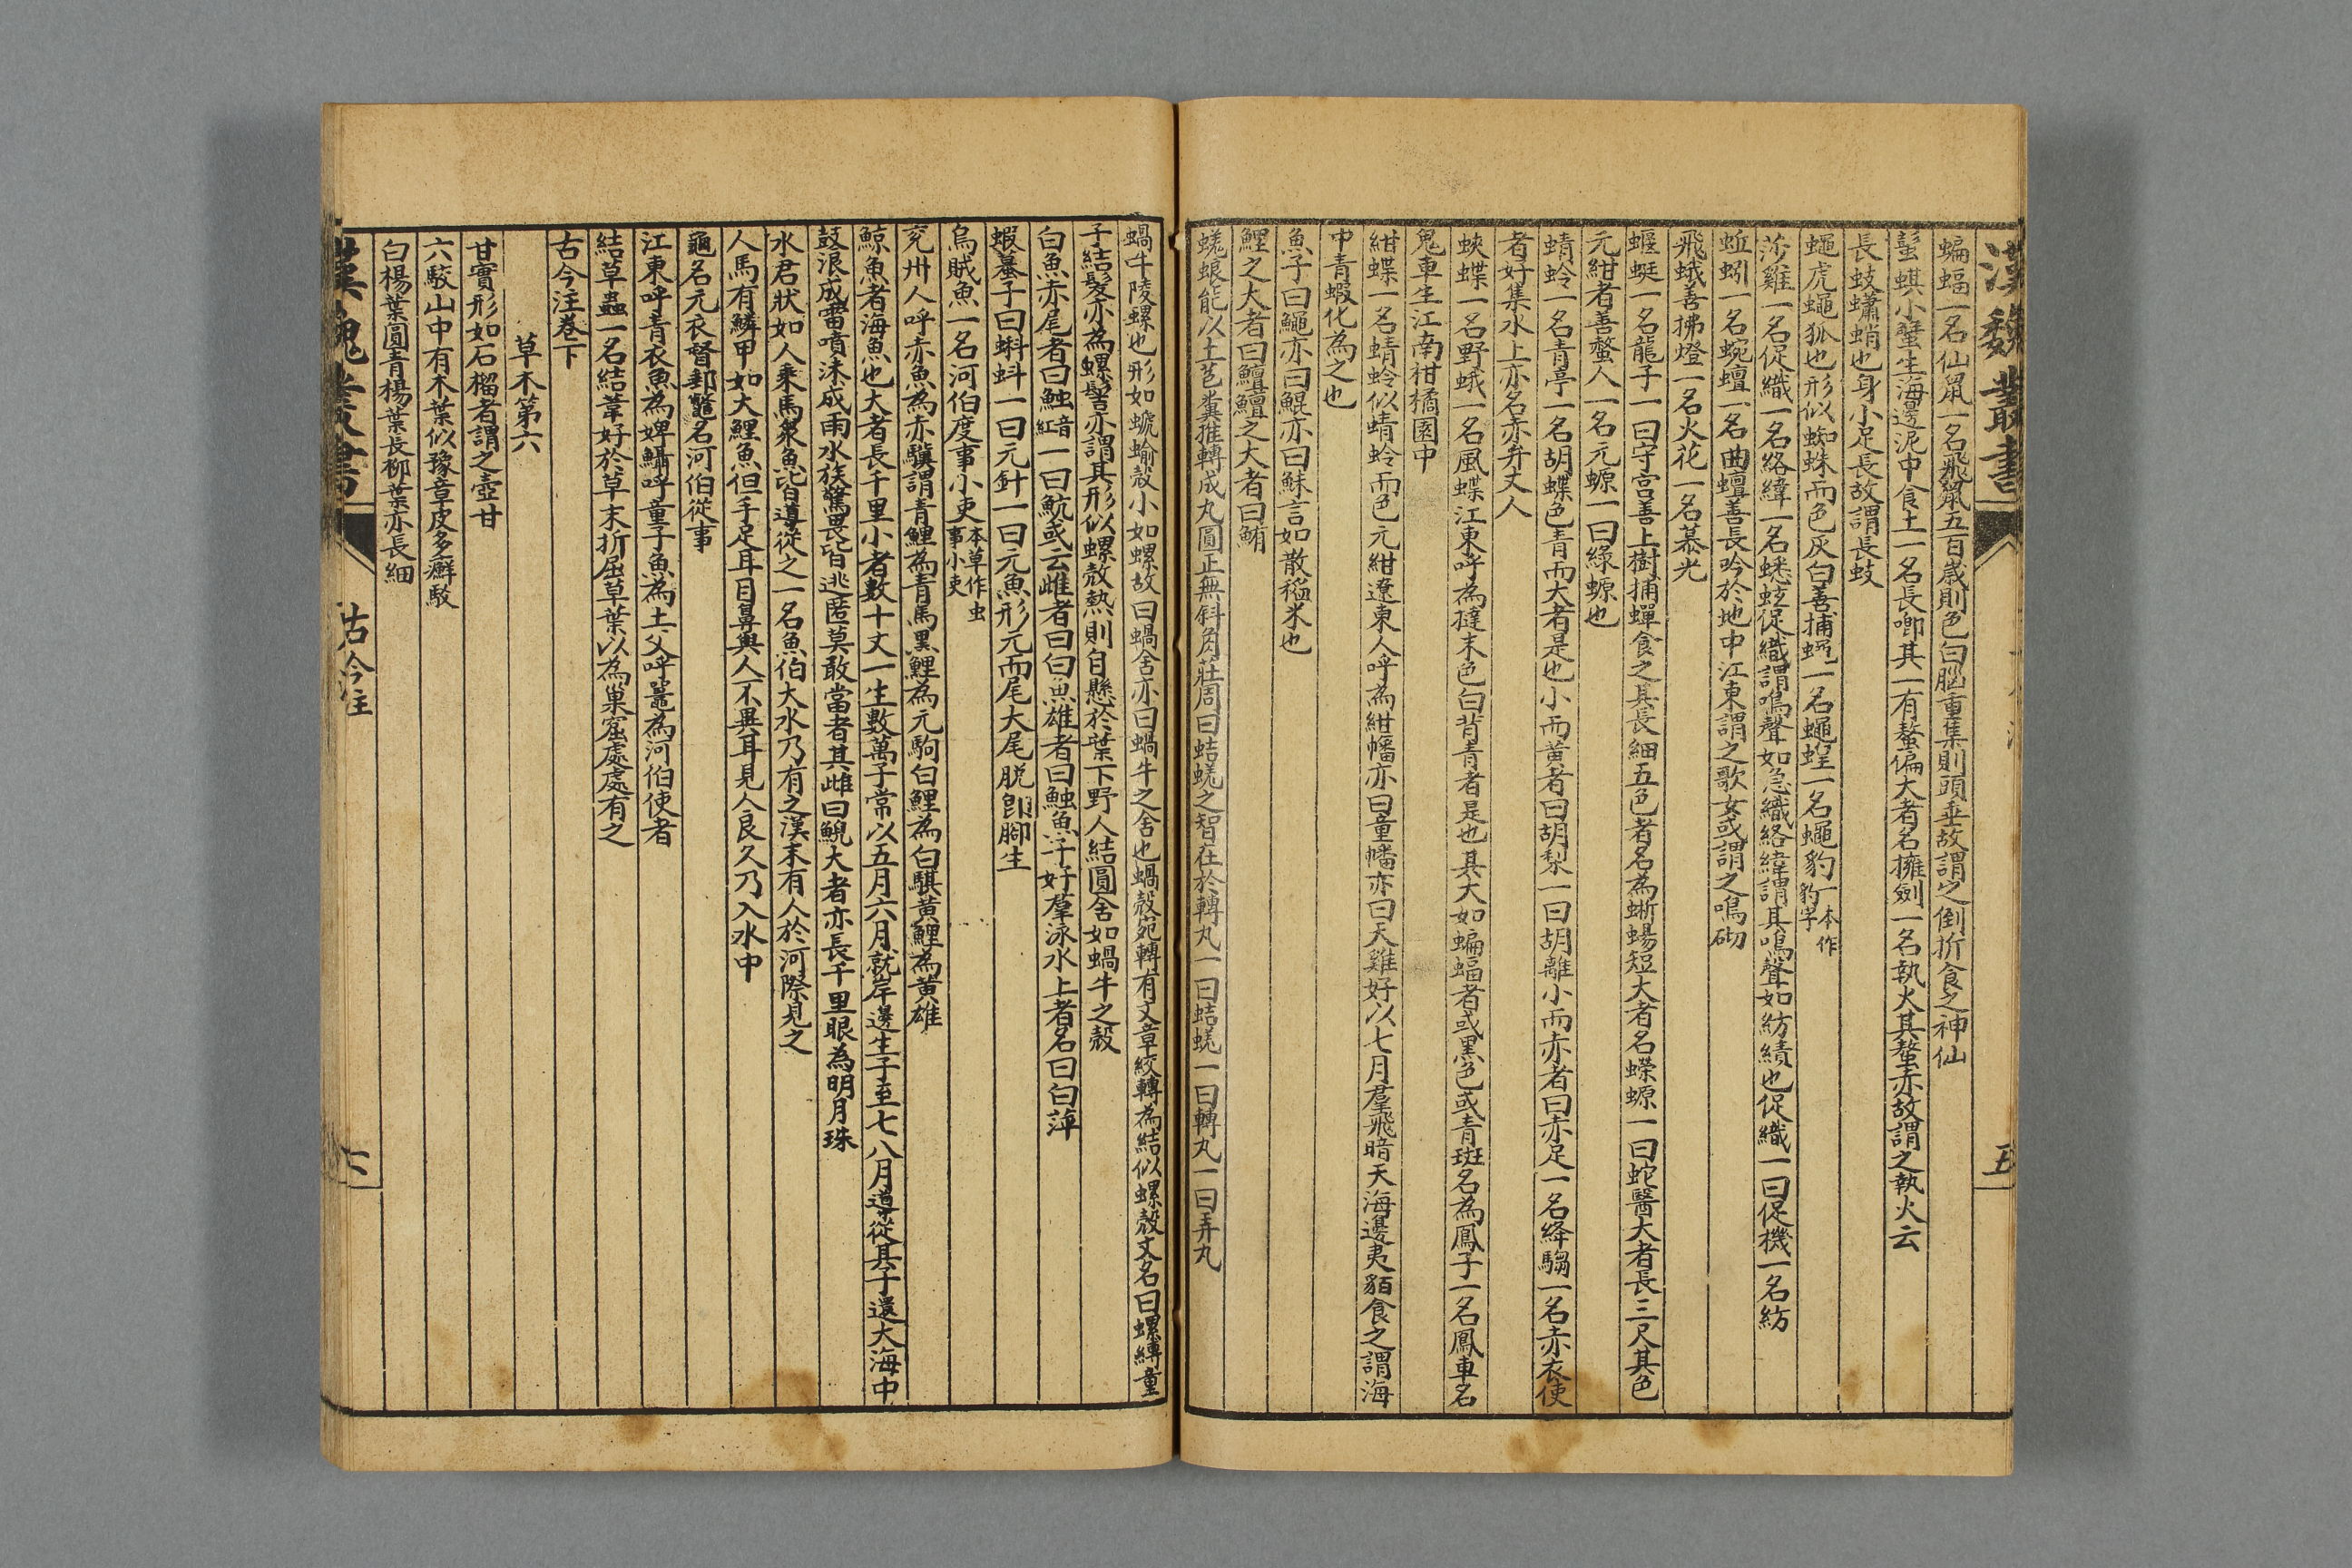 漢魏叢書
五
蝙蝠一名仙鼠一名飛鼠五百歲則色白腦重集則頭垂故謂之倒折食之神仙
蟚蜞小蟹生海邊泥中食土一名長卿其一有螯偏大者名擁劍一名執火其螯赤故謂之執火云
長蚑蠨蛸也身小足長故謂長蚑
蠅虎蠅狐也形似蜘蛛而色灰白善捕蠅一名蠅蝗一名蠅豹一本作豹字
莎雞一名促織一名絡緯一名蟋蟀促織謂鳴聲如急織絡緯謂其鳴聲如紡績也促織一曰促機一名紡
蚯蚓一名蜿蟺一名曲蟺善長吟於地中江東謂之歌女或謂之鳴砌
飛蛾善拂燈一名火花一名慕光
蝘蜓一名龍子一曰守宮善上樹捕蟬食之其長細五色者名為蜥蜴短大者名蠑螈一曰蛇醫大者長三尺其色
元紺者善螫人一名元螈一曰綠螈也
蜻蛉一名青亭一名胡蝶色青而大者是也小而黃者曰胡梨一曰胡離小而赤者曰赤足一名絳騶一名赤衣使
者好集水上亦名赤弁丈人
蛺蝶一名野蛾一名風蝶江東呼為撻末色白背青者是也其大如蝙蝠者或黑色或青斑名為鳳子一名鳳車名
鬼車生江南柑橘園中
紺蝶一名蜻蛉似蜻蛉而色元紺遼東人呼為紺幡亦曰童幡亦曰天雞好以七月羣飛暗天海邊夷貊食之謂海
中青蝦化為之也
魚子曰鱦亦曰鯤亦曰鮇言如散稻米也
鯉之大者曰鱣鱣之大者曰鮪
蜣蜋能以土苞糞推轉成丸圓正無斜角莊周曰蛣蜣之智在於轉丸一曰蛣蜣一曰轉丸一曰弄丸
蝸牛陵螺也形如螔蝓殼小如螺故曰蝸舍亦曰蝸牛之舍也蝸殼宛轉有文章絞轉為結似螺殼文名曰螺縳童
子結髮亦為螺髻亦謂其形似螺殼熱則自懸於葉下野人結圓舍如蝸牛之殼
白魚赤尾者曰䱉音紅一曰魧或云雌者曰白魚雄者曰䱉魚子好羣泳水上者名曰白萍
蝦蟇子曰蝌蚪一曰元針一曰元魚形元而尾大尾脫即腳生
烏賊魚一名河伯度事小吏本草作虫事小吏
兖州人呼赤魚為赤驥謂青鯉為青馬黑鯉為元駒白鯉為白騏黃鯉為黃雄
鯨魚者海魚也大者長千里小者數十丈一生數萬子常以五月六月就岸邊生子至七八月導從其子還大海中
鼓浪成雷噴沫成雨水族驚畏皆逃匿莫敢當者其雌曰鯢大者亦長千里眼為明月珠
水君狀如人乘馬衆魚皆導從之一名魚伯大水乃有之漢末有人於河際見之
人馬有鱗甲如大鯉魚但手足耳目鼻與人不異耳見人良久乃入水中
龜名元衣督郵鼈名河伯從事
江東呼青衣魚為婢鱅呼童子魚為土父呼鼉為河伯使者
結草蟲一名結葦好於草末折屈草葉以為巢窟處處有之
古今注卷下
草木第六
甘實形如石榴者謂之壺甘
六駮山中有木葉似豫章皮多癬駮
白楊葉圓青楊葉長柳葉亦長細
漢魏叢書
古今注
六